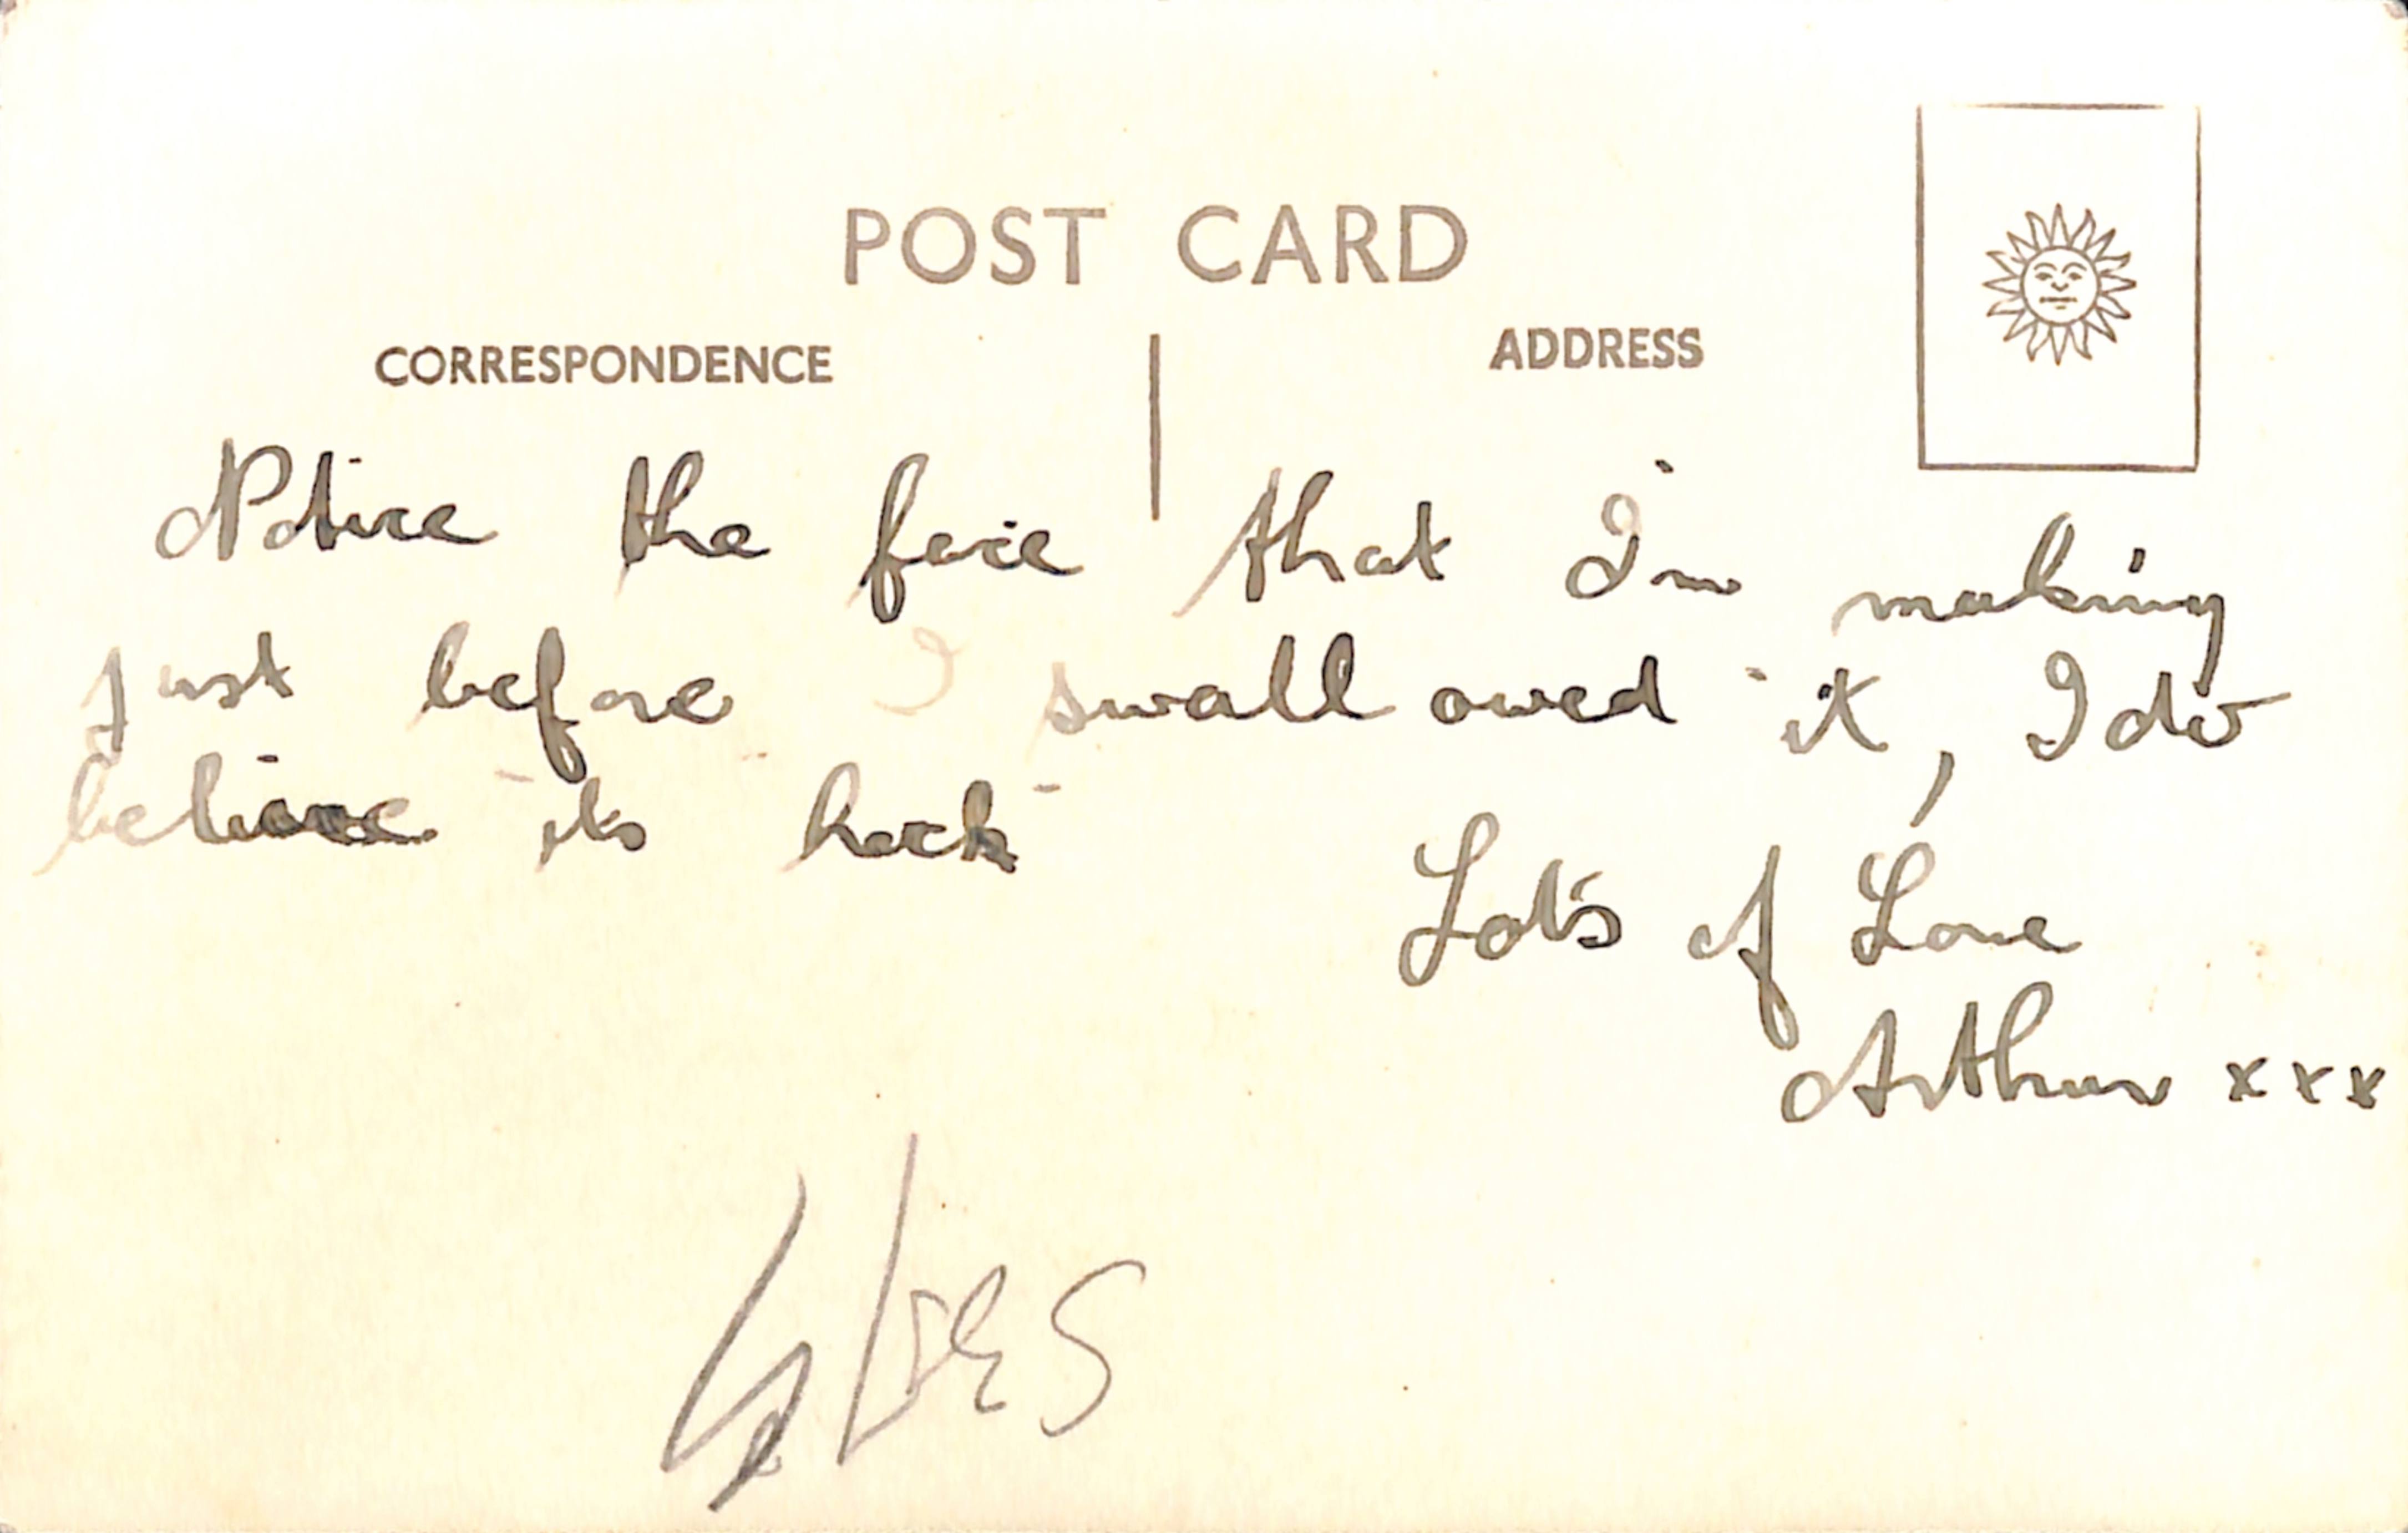 POST CARD
CORRESPONDENCE
ADDRESS
Notice the face that I'm making
just before I swallowed it, I do
believe its
Lot's of Love
Arthur xxx